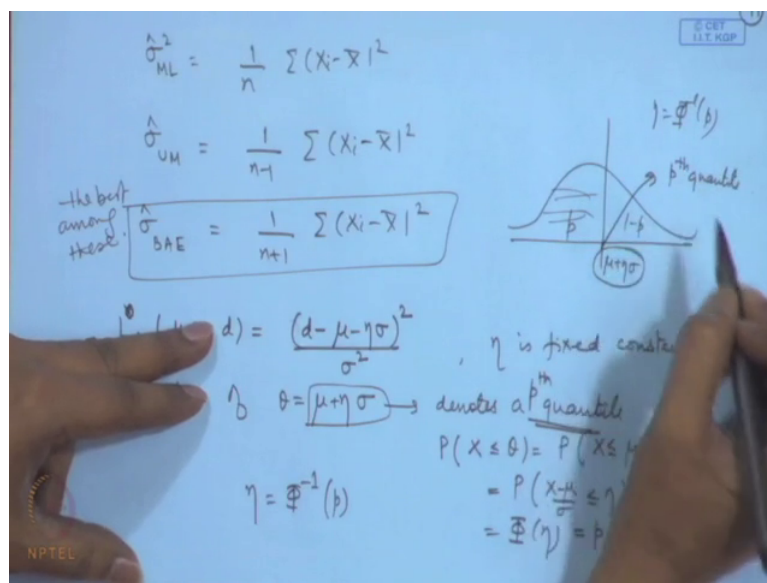 © CET
I.I.T. KGP
σ̂²_ML = 1/n Σ(Xi-X̄)²
σ̂_UM = 1/(n-1) Σ(Xi-X̄)²
the best among these.
σ̂_BAE = 1/(n+1) Σ(Xi-X̄)²
= Φ⁻¹(p)
pth quantile
p
1-p
μ+ησ
d) = (d-μ-ησ)²/σ² , η is fixed
θ = μ+ησ → denotes a pth quantile
P(X ≤ θ) = P(X ≤ μ
η = Φ⁻¹(p)
= P((X-μ)/σ ≤ η
= Φ(η) = p
NPTEL